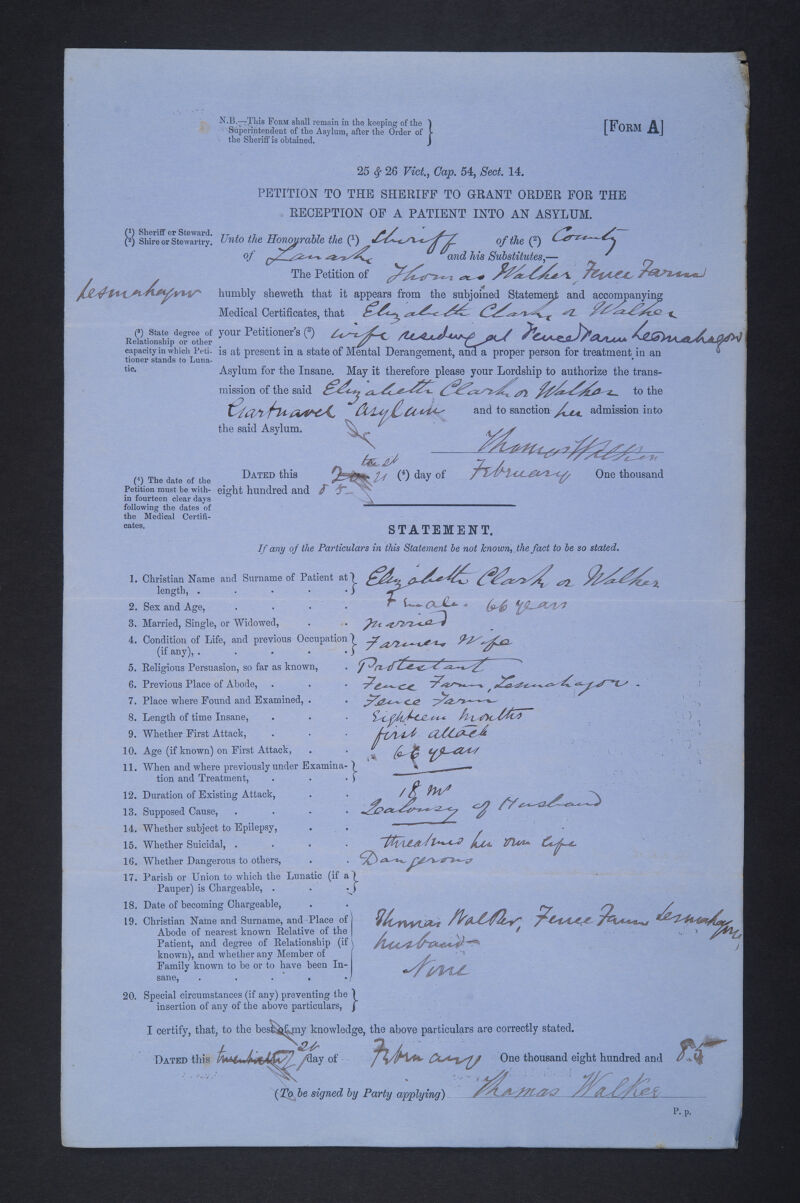 N.B.—This Form shall remain in the keeping of the
Superintendent of the Asylum, after the Order of
the Sheriff is obtained.
[Form A]
25 & 26 Vict., Cap. 54, Sect. 14.
PETITION TO THE SHERIFF TO GRANT ORDER FOR THE
RECEPTION OF A PATIENT INTO AN ASYLUM.
(1) Sheriff or Steward.
(2) Shire or Stewartry.
Unto the Honourable the (1) Sheriff of the (2) County
of Lanark and his Substitutes,—
The Petition of Thomas Walker Fence Farm
Lesmahagow humbly sheweth that it appears from the subjoined Statement and accompanying
Medical Certificates, that Elizabeth Clark or Walker
(3) State degree of
Relationship or other
capacity in which Peti-
tioner stands to Luna-
tic.
your Petitioner's (3) wife residing at Fence Farm Lesmahagow
is at present in a state of Mental Derangement, and a proper person for treatment in an
Asylum for the Insane. May it therefore please your Lordship to authorize the trans-
mission of the said Elizabeth Clark or Walker to the
Gartnavel Asylum and to sanction her admission into
the said Asylum.
Thomas Walker
(4) The date of the
Petition must be with-
in fourteen clear days
following the dates of
the Medical Certifi-
cates.
Dated this 21 (4) day of February One thousand
eight hundred and 85
STATEMENT.
If any of the Particulars in this Statement be not known, the fact to be so stated.
1. Christian Name and Surname of Patient at
length, . Elizabeth Clark or Walker
2. Sex and Age, Female. 66 years
3. Married, Single, or Widowed, Married
4. Condition of Life, and previous Occupation
(if any), . Farmers Wife
5. Religious Persuasion, so far as known, Protestant
6. Previous Place of Abode, . Fence Farm, Lesmahagow.
7. Place where Found and Examined, . Fence Farm
8. Length of time Insane, Eighteen Months
9. Whether First Attack, first attack
10. Age (if known) on First Attack, 66 years
11. When and where previously under Examina-
tion and Treatment,
12. Duration of Existing Attack, 18 Ms
13. Supposed Cause, Jealousy of Husband
14. Whether subject to Epilepsy,
15. Whether Suicidal, . threatened her own life
16. Whether Dangerous to others, Dangerous
17. Parish or Union to which the Lunatic (if a
Pauper) is Chargeable, .
18. Date of becoming Chargeable,
19. Christian Name and Surname, and Place of
Abode of nearest known Relative of the
Patient, and degree of Relationship (if
known), and whether any Member of
Family known to be or to have been In-
sane,
Thomas Walker, Fence Farm Lesmahagow,
husband
None
20. Special circumstances (if any) preventing the
insertion of any of the above particulars,
I certify, that, to the best of my knowledge, the above particulars are correctly stated.
Dated this twentieth 21 day of February One thousand eight hundred and 85
(To be signed by Party applying) Thomas Walker
P. p.